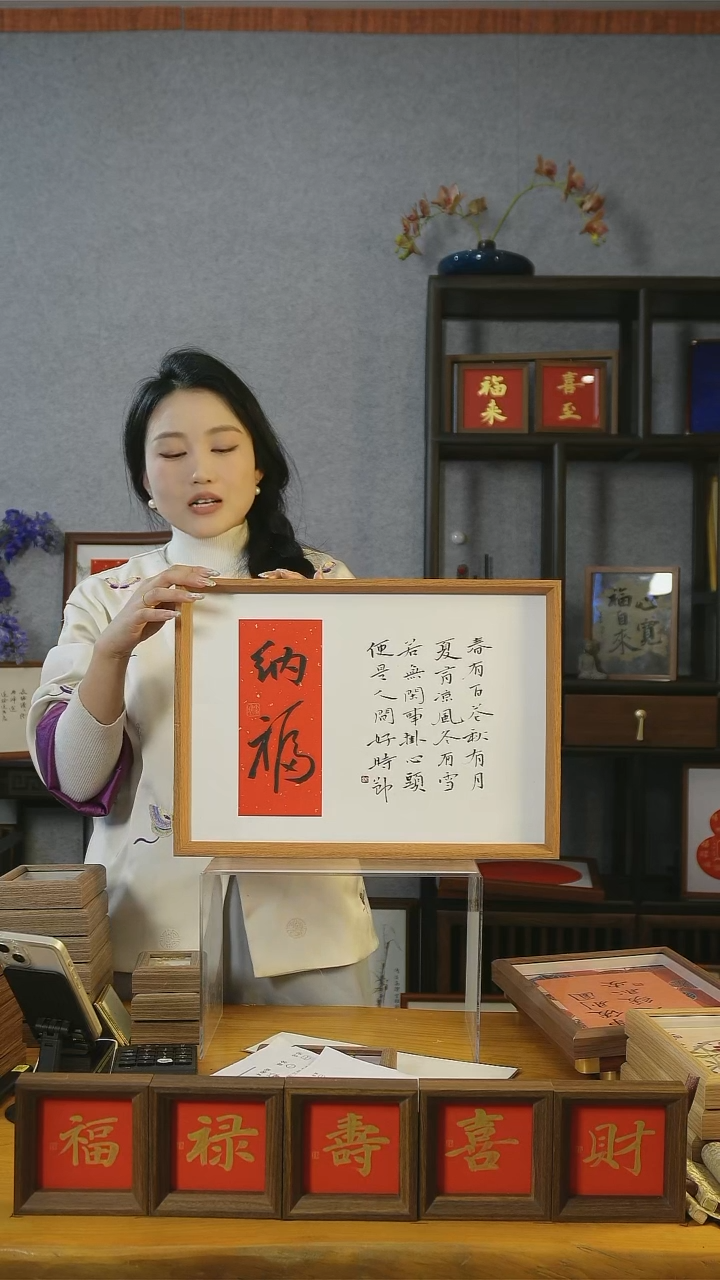 福来
喜至
心寬
福自来
納福
春有百花秋有月
夏有凉風冬有雪
若無閑事掛心頭
便是人間好時節
福
禄
壽
喜
財